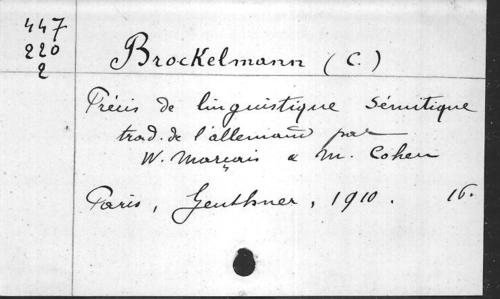 447
220
2
Brockelmann (C.)
Précis de linguistique Sémitique
trad. de l'allemand par
W. Marçais & M. Cohen
Paris, Geuthner, 1910. 16.